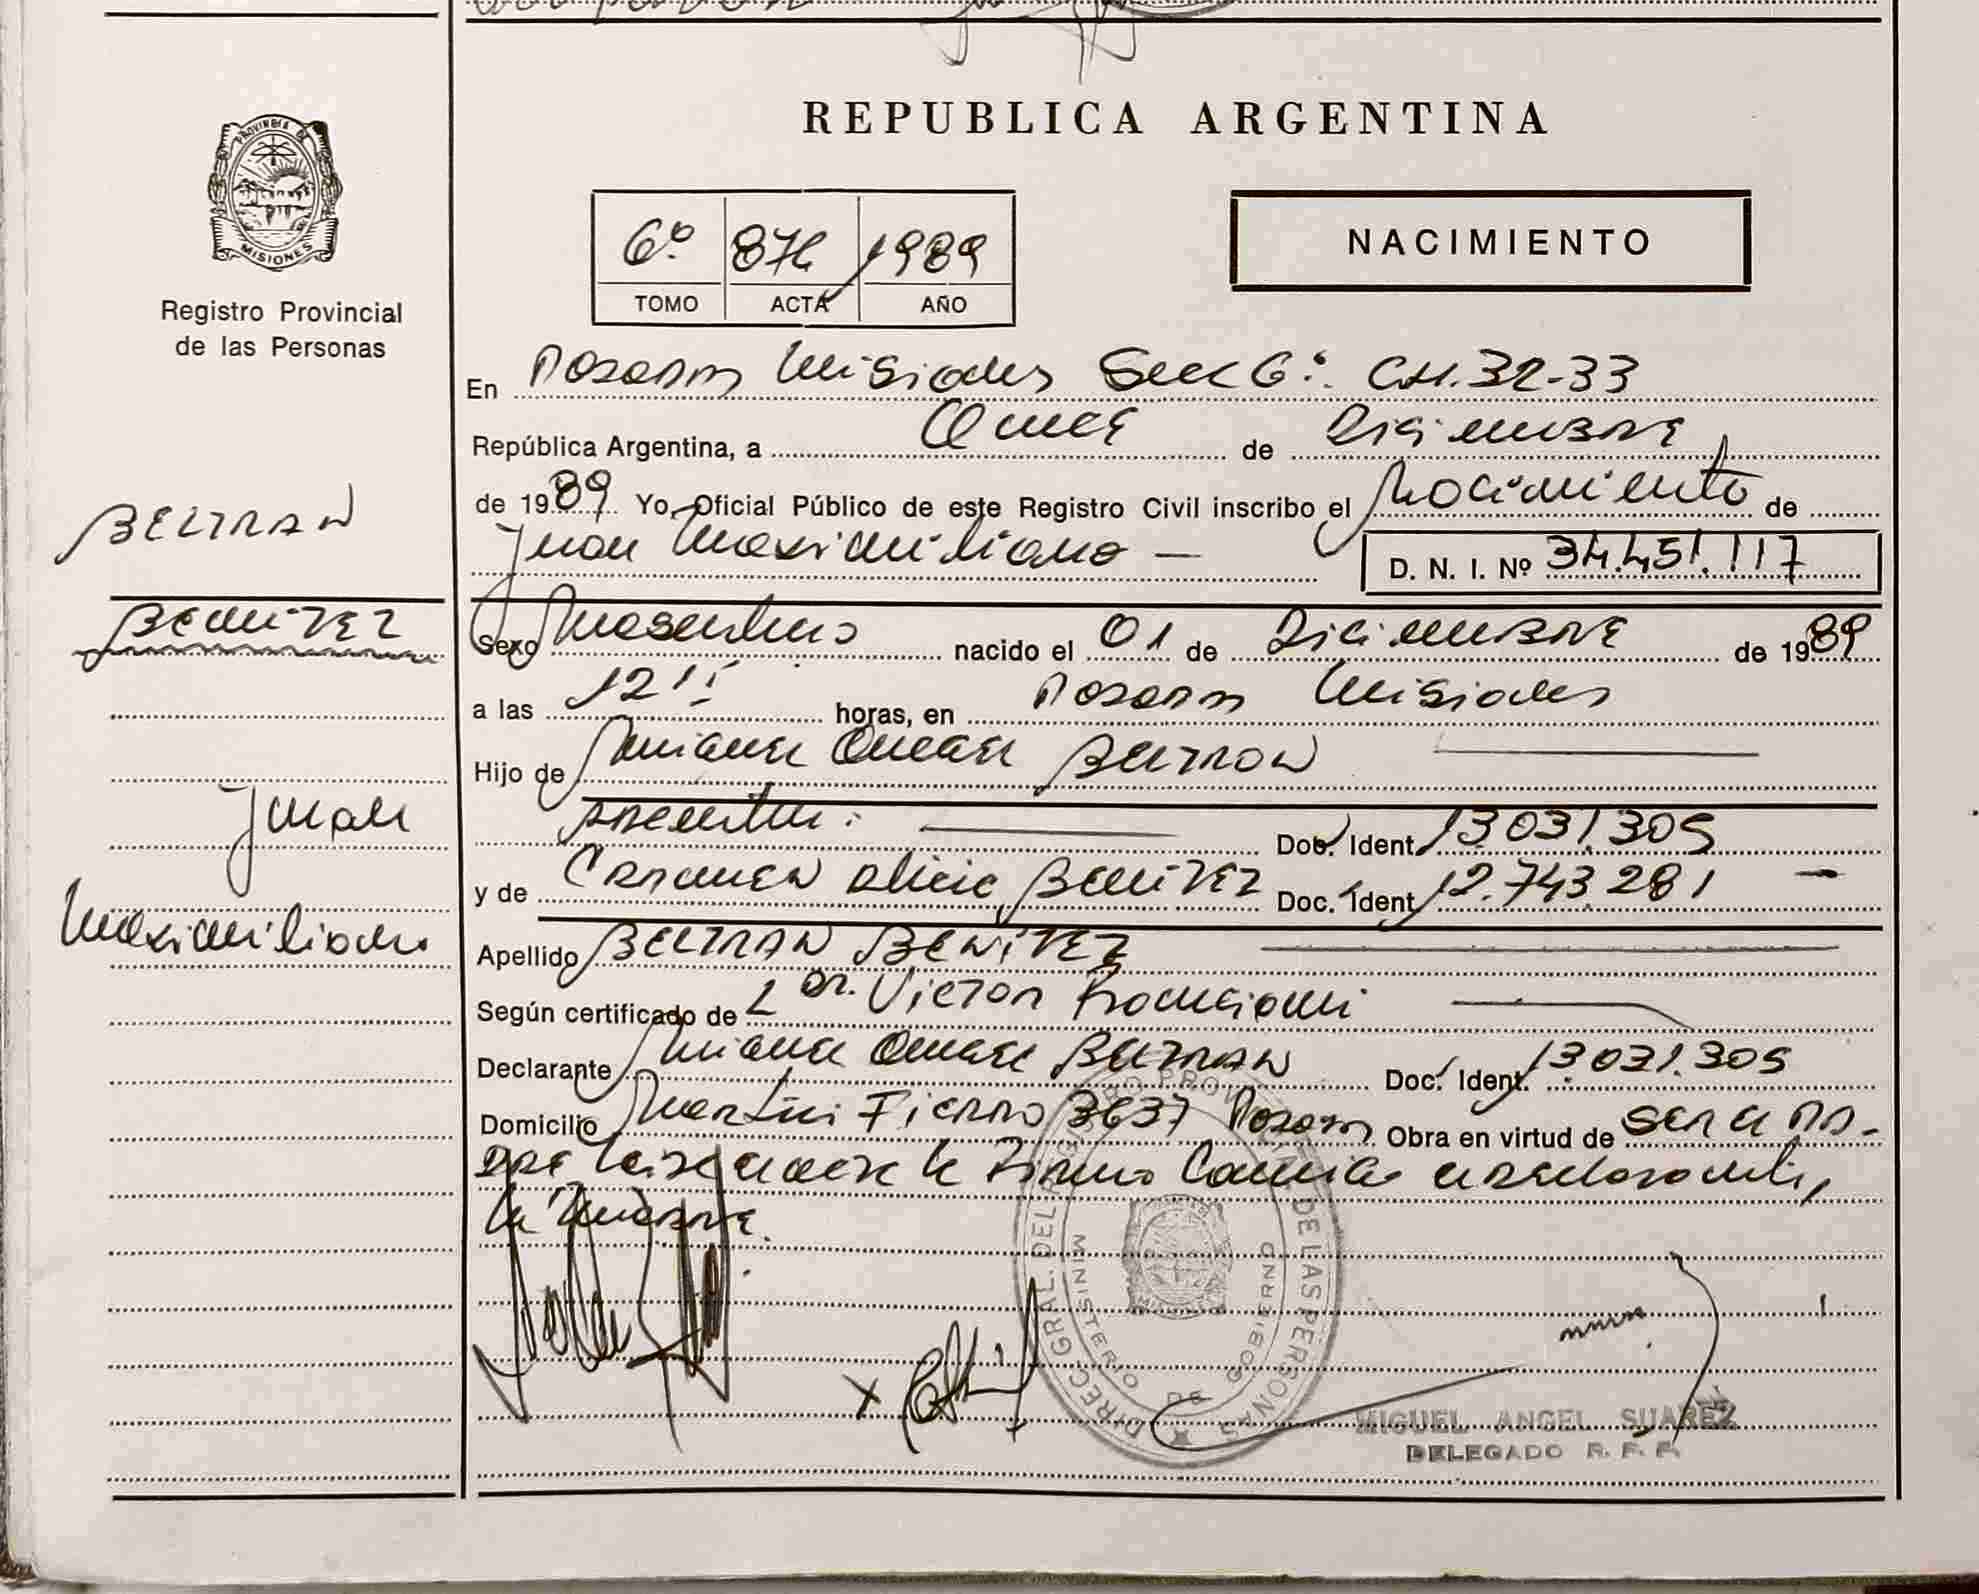 PROVINCIA DE
MISIONES
Registro Provincial
de las Personas
BELTRAN
BENITEZ
Juan
Maximiliano
REPUBLICA ARGENTINA
6º 876 1989
TOMO ACTA AÑO
NACIMIENTO
En Posadas Misiones Secc 6º. CH. 32-33
República Argentina, a Once de Diciembre
de 1989 Yo, Oficial Público de este Registro Civil inscribo el Nacimiento de
Juan Maximiliano — D. N. I. Nº 34.451.117
Sexo Masculino nacido el 01 de Diciembre de 1989
a las 12 horas, en Posadas Misiones
Hijo de Miguel Omar Beltran
Argentino. Doc. Ident. 13031.305
y de Carmen Alicia Benitez Doc. Ident. 12.743.281 —
Apellido BELTRAN BENÍTEZ
Según certificado de Dr. Victor
Declarante Miguel Omar Beltran Doc. Ident. 13031.305
Domicilio Martin Fierro 3637 Posadas Obra en virtud de ser el pa-
dre
la Madre.
DIREC. GRAL. DEL REGISTRO PROVINCIAL DE LAS PERSONAS
MINISTERIO DE GOBIERNO
MIGUEL ANGEL SUAREZ
DELEGADO R. P. P.